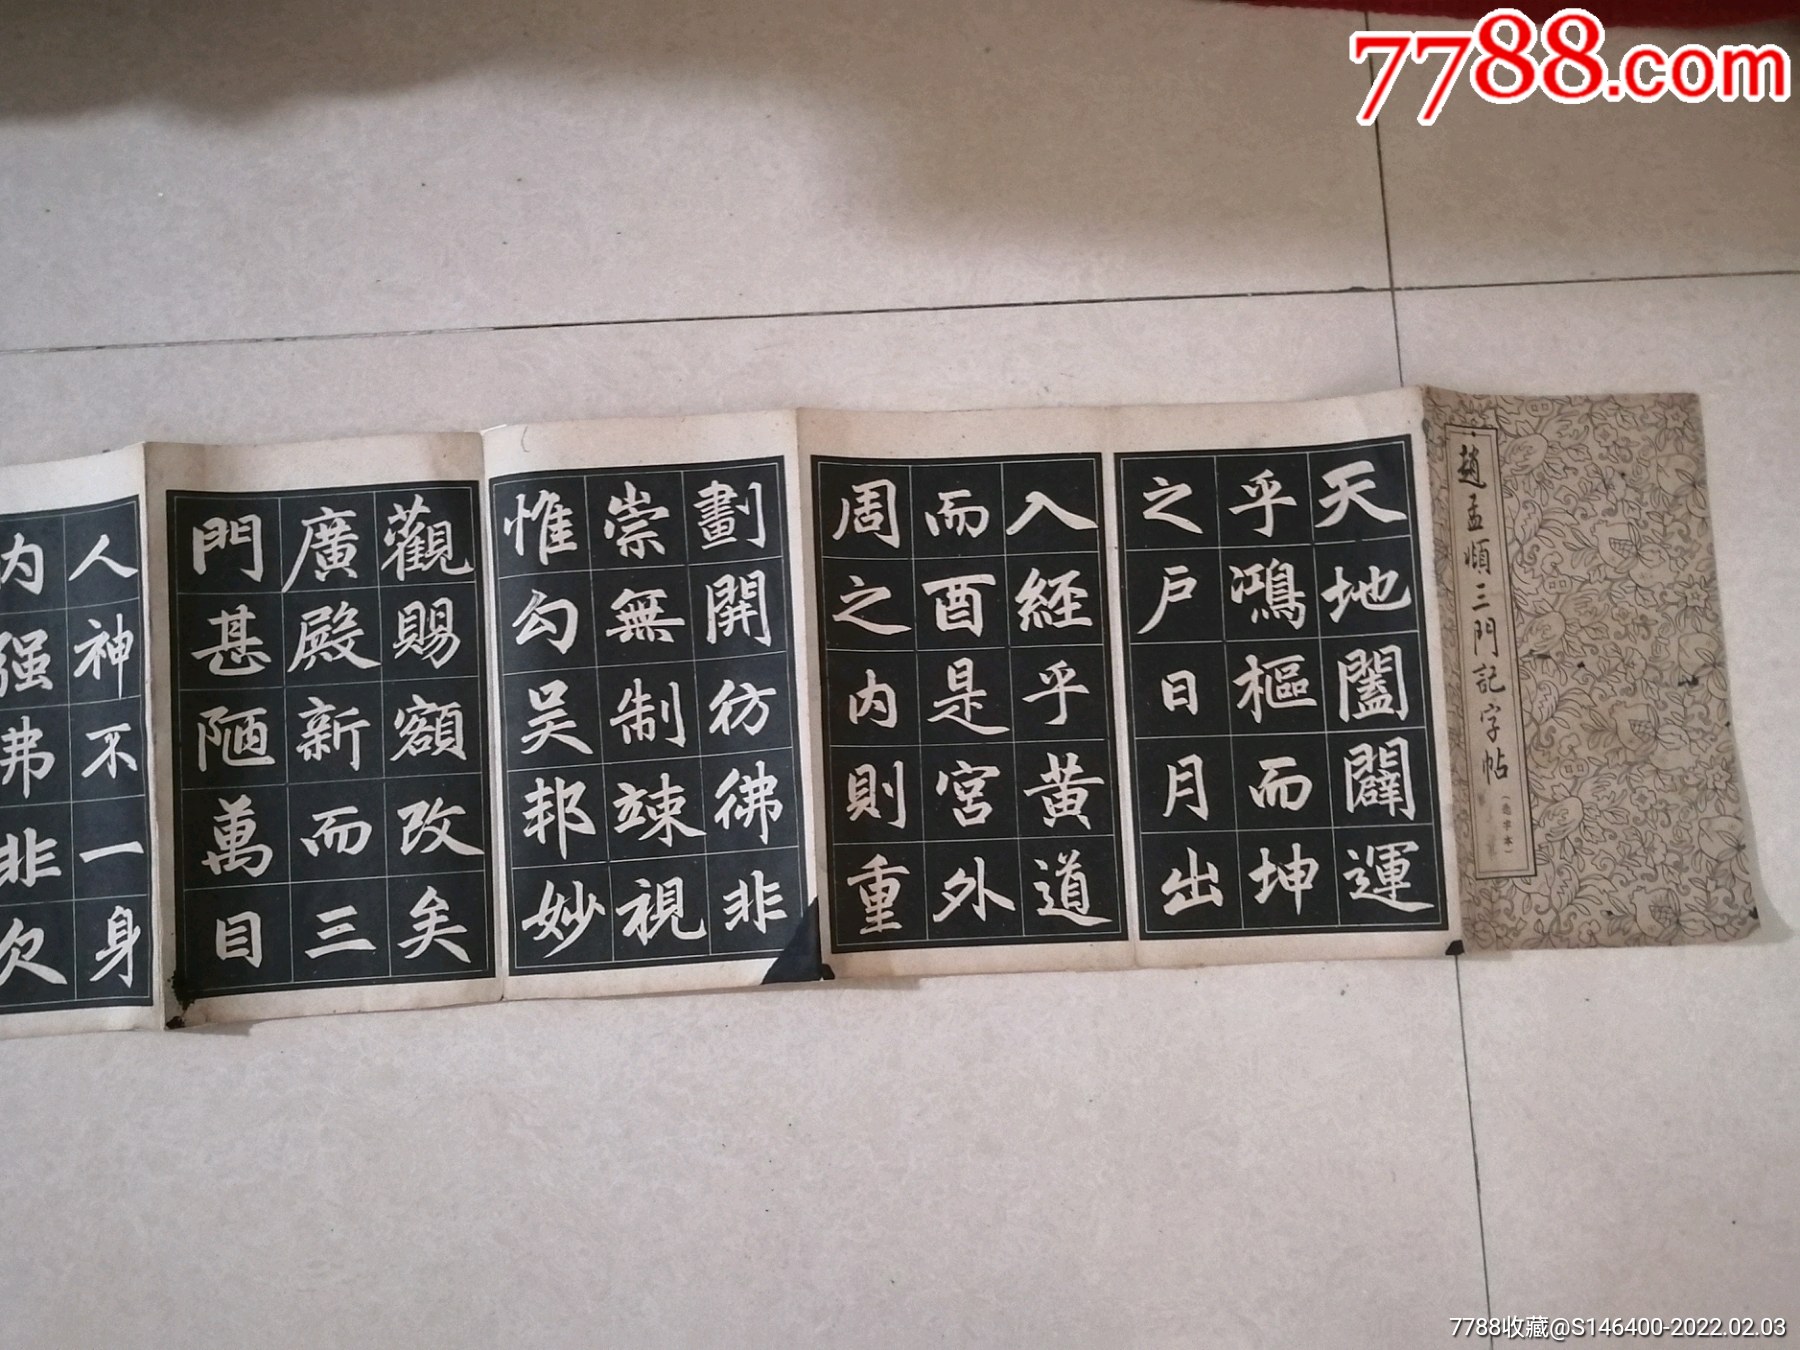 7788.com
趙孟頫三門記字帖
（选字本）
天地闔闢運
乎鴻樞而坤
之户日月出
入經乎黄道
而酉是宮外
周之内則重
劃開彷彿非
崇無制竦視
惟勾吴邦妙
觀賜額改矣
廣殿新而三
門甚陋萬目
人神不一身
内强弗非欠
7788收藏@S146400-2022.02.03